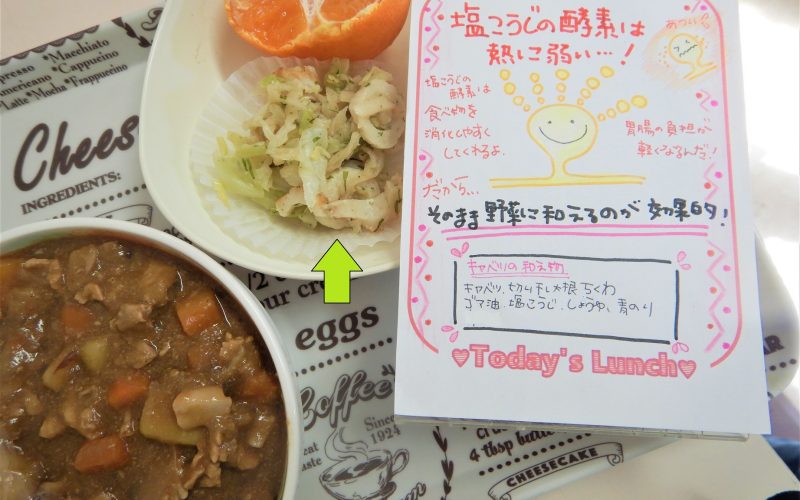 espresso *Macchiato
Americano *Cappucino
Latte *Mocha *Frappucino
Chees
INGREDIENTS:
eggs
Coffee
Since
1924
CHEESECAKE
塩こうじの酵素は
熱に弱い…!
あついよ
塩こうじの
酵素は
食べ物を
消化しやすく
してくれるよ.
胃腸の負担が
軽くなるんだ!
だから...
そのまま野菜に和えるのが効果的!
キャベツの和え物
キャベツ、切り干し大根、ちくわ
ゴマ油、塩こうじ、しょうゆ、青のり
♥Today's Lunch♥